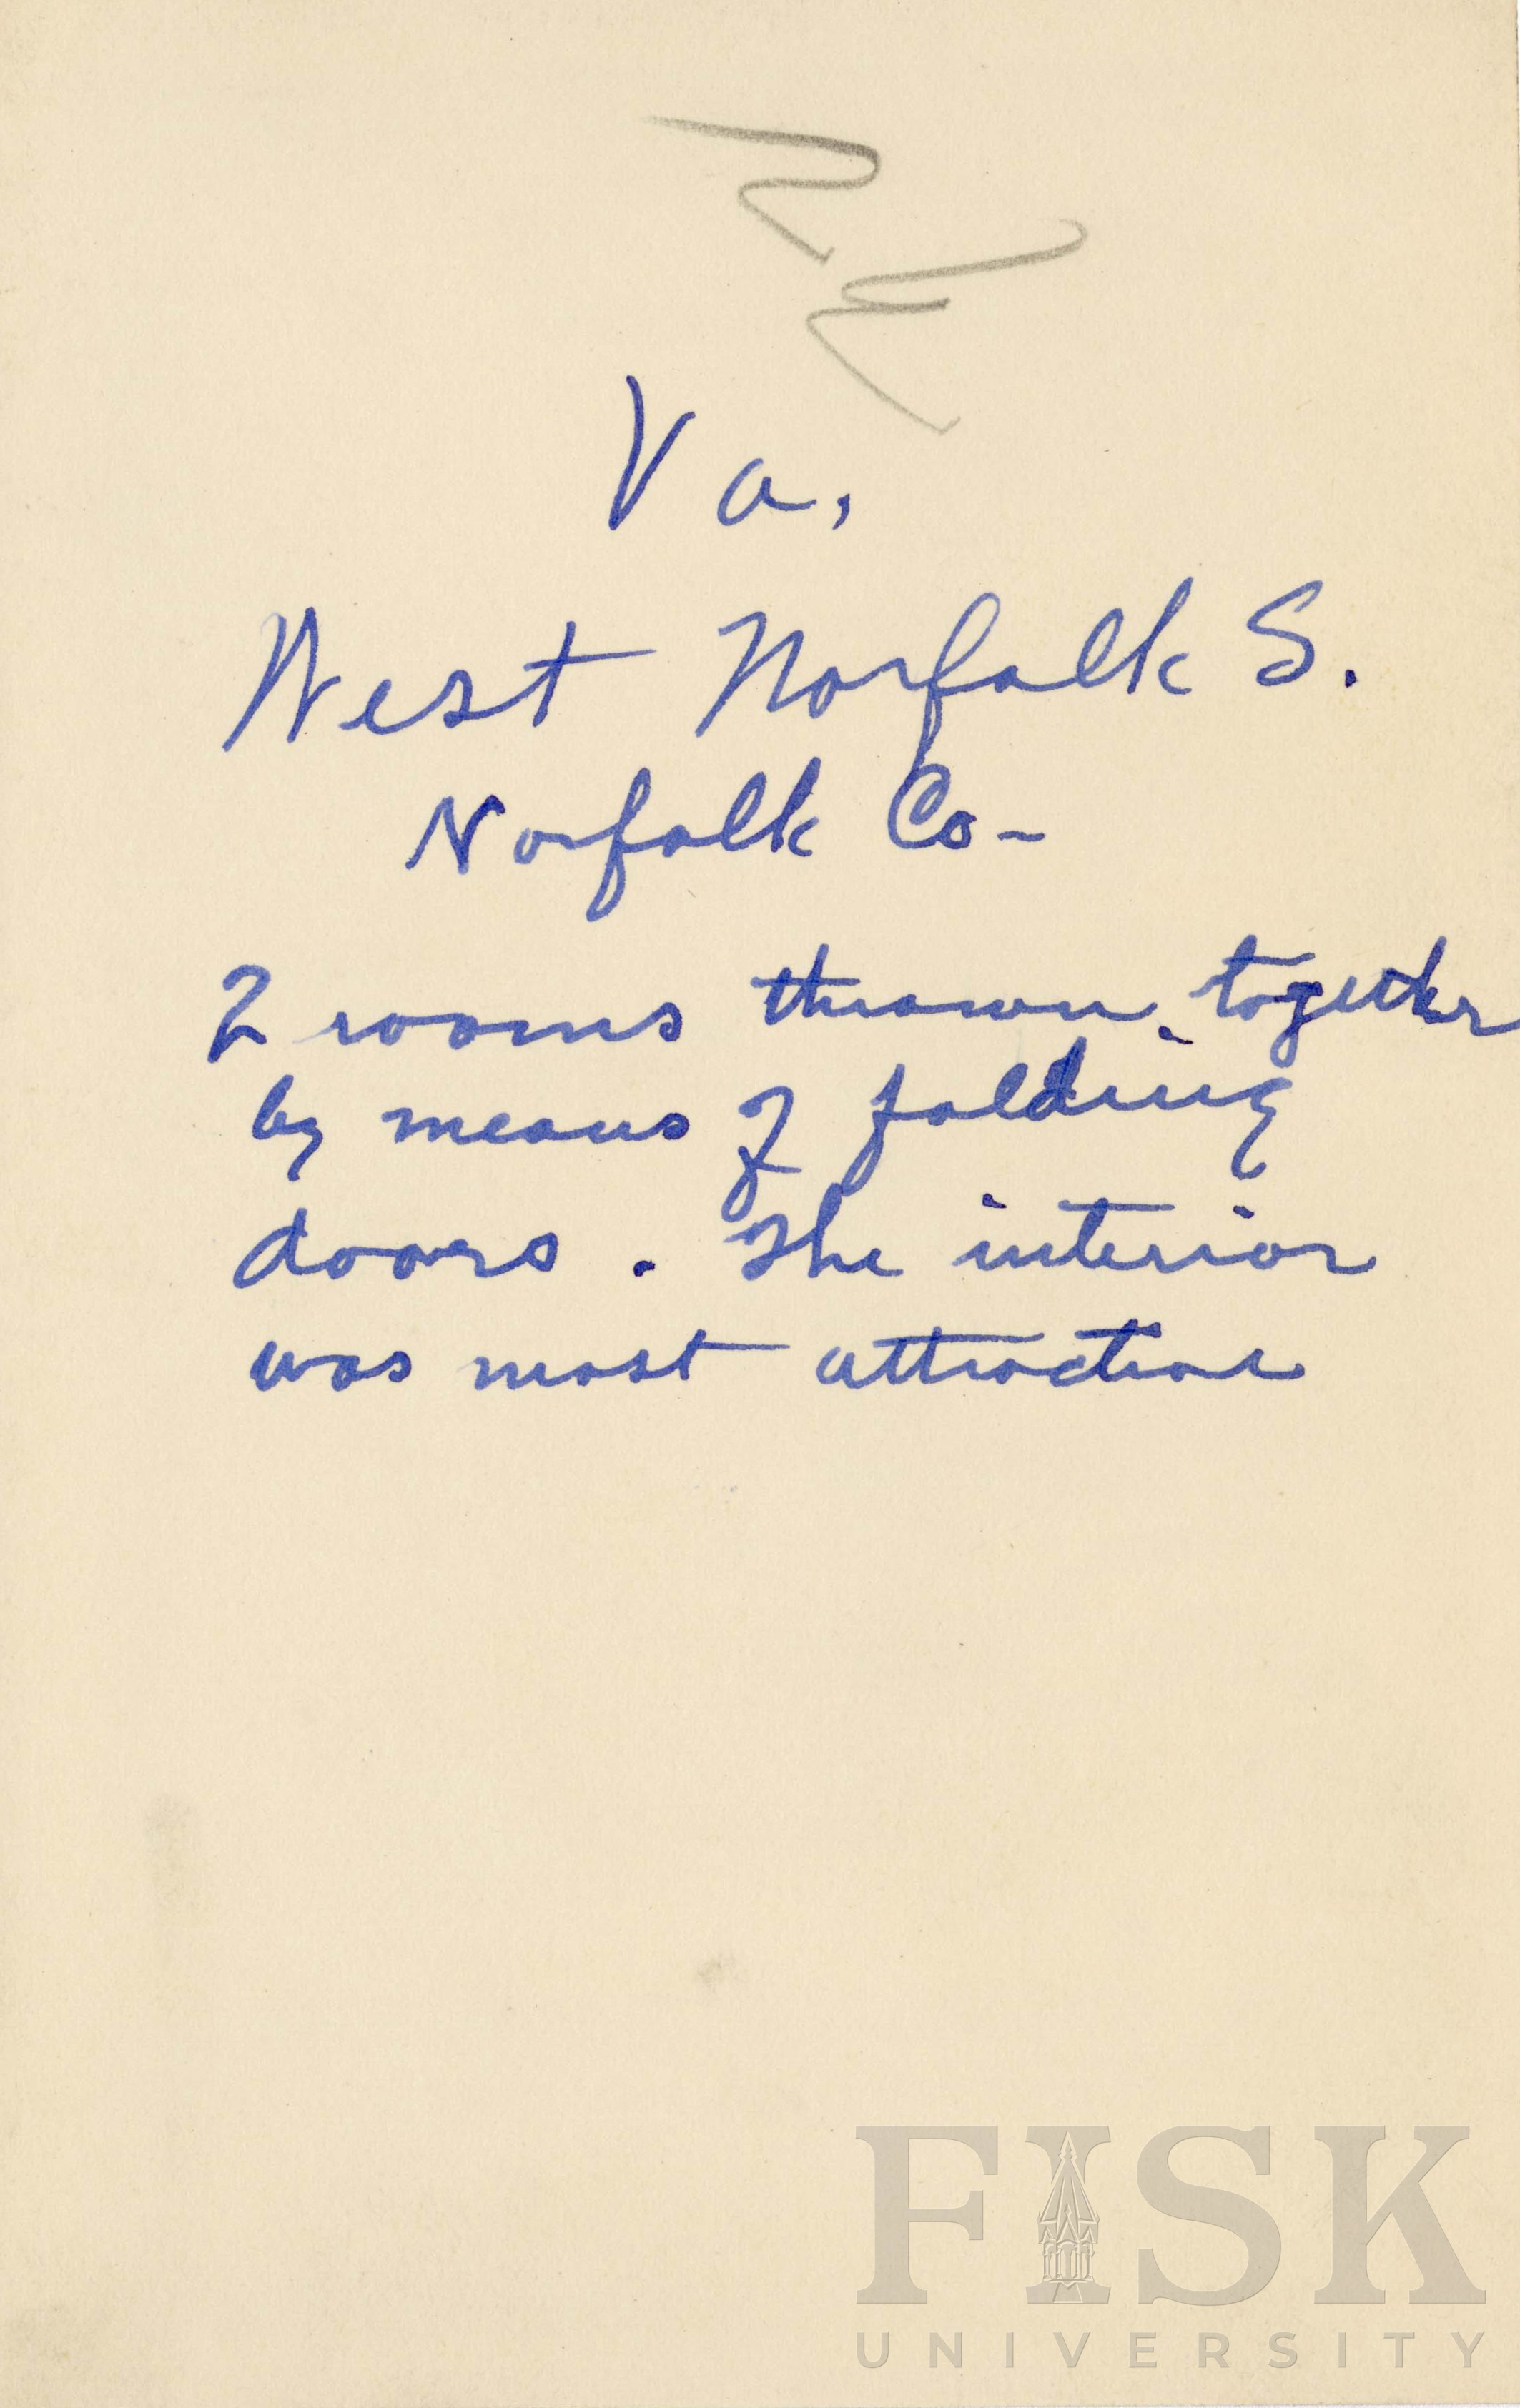 Va.
West Norfolk S.
Norfolk Co-
2 rooms thrown together
by means of folding
doors. The interior
was most attractive
FISK
UNIVERSITY